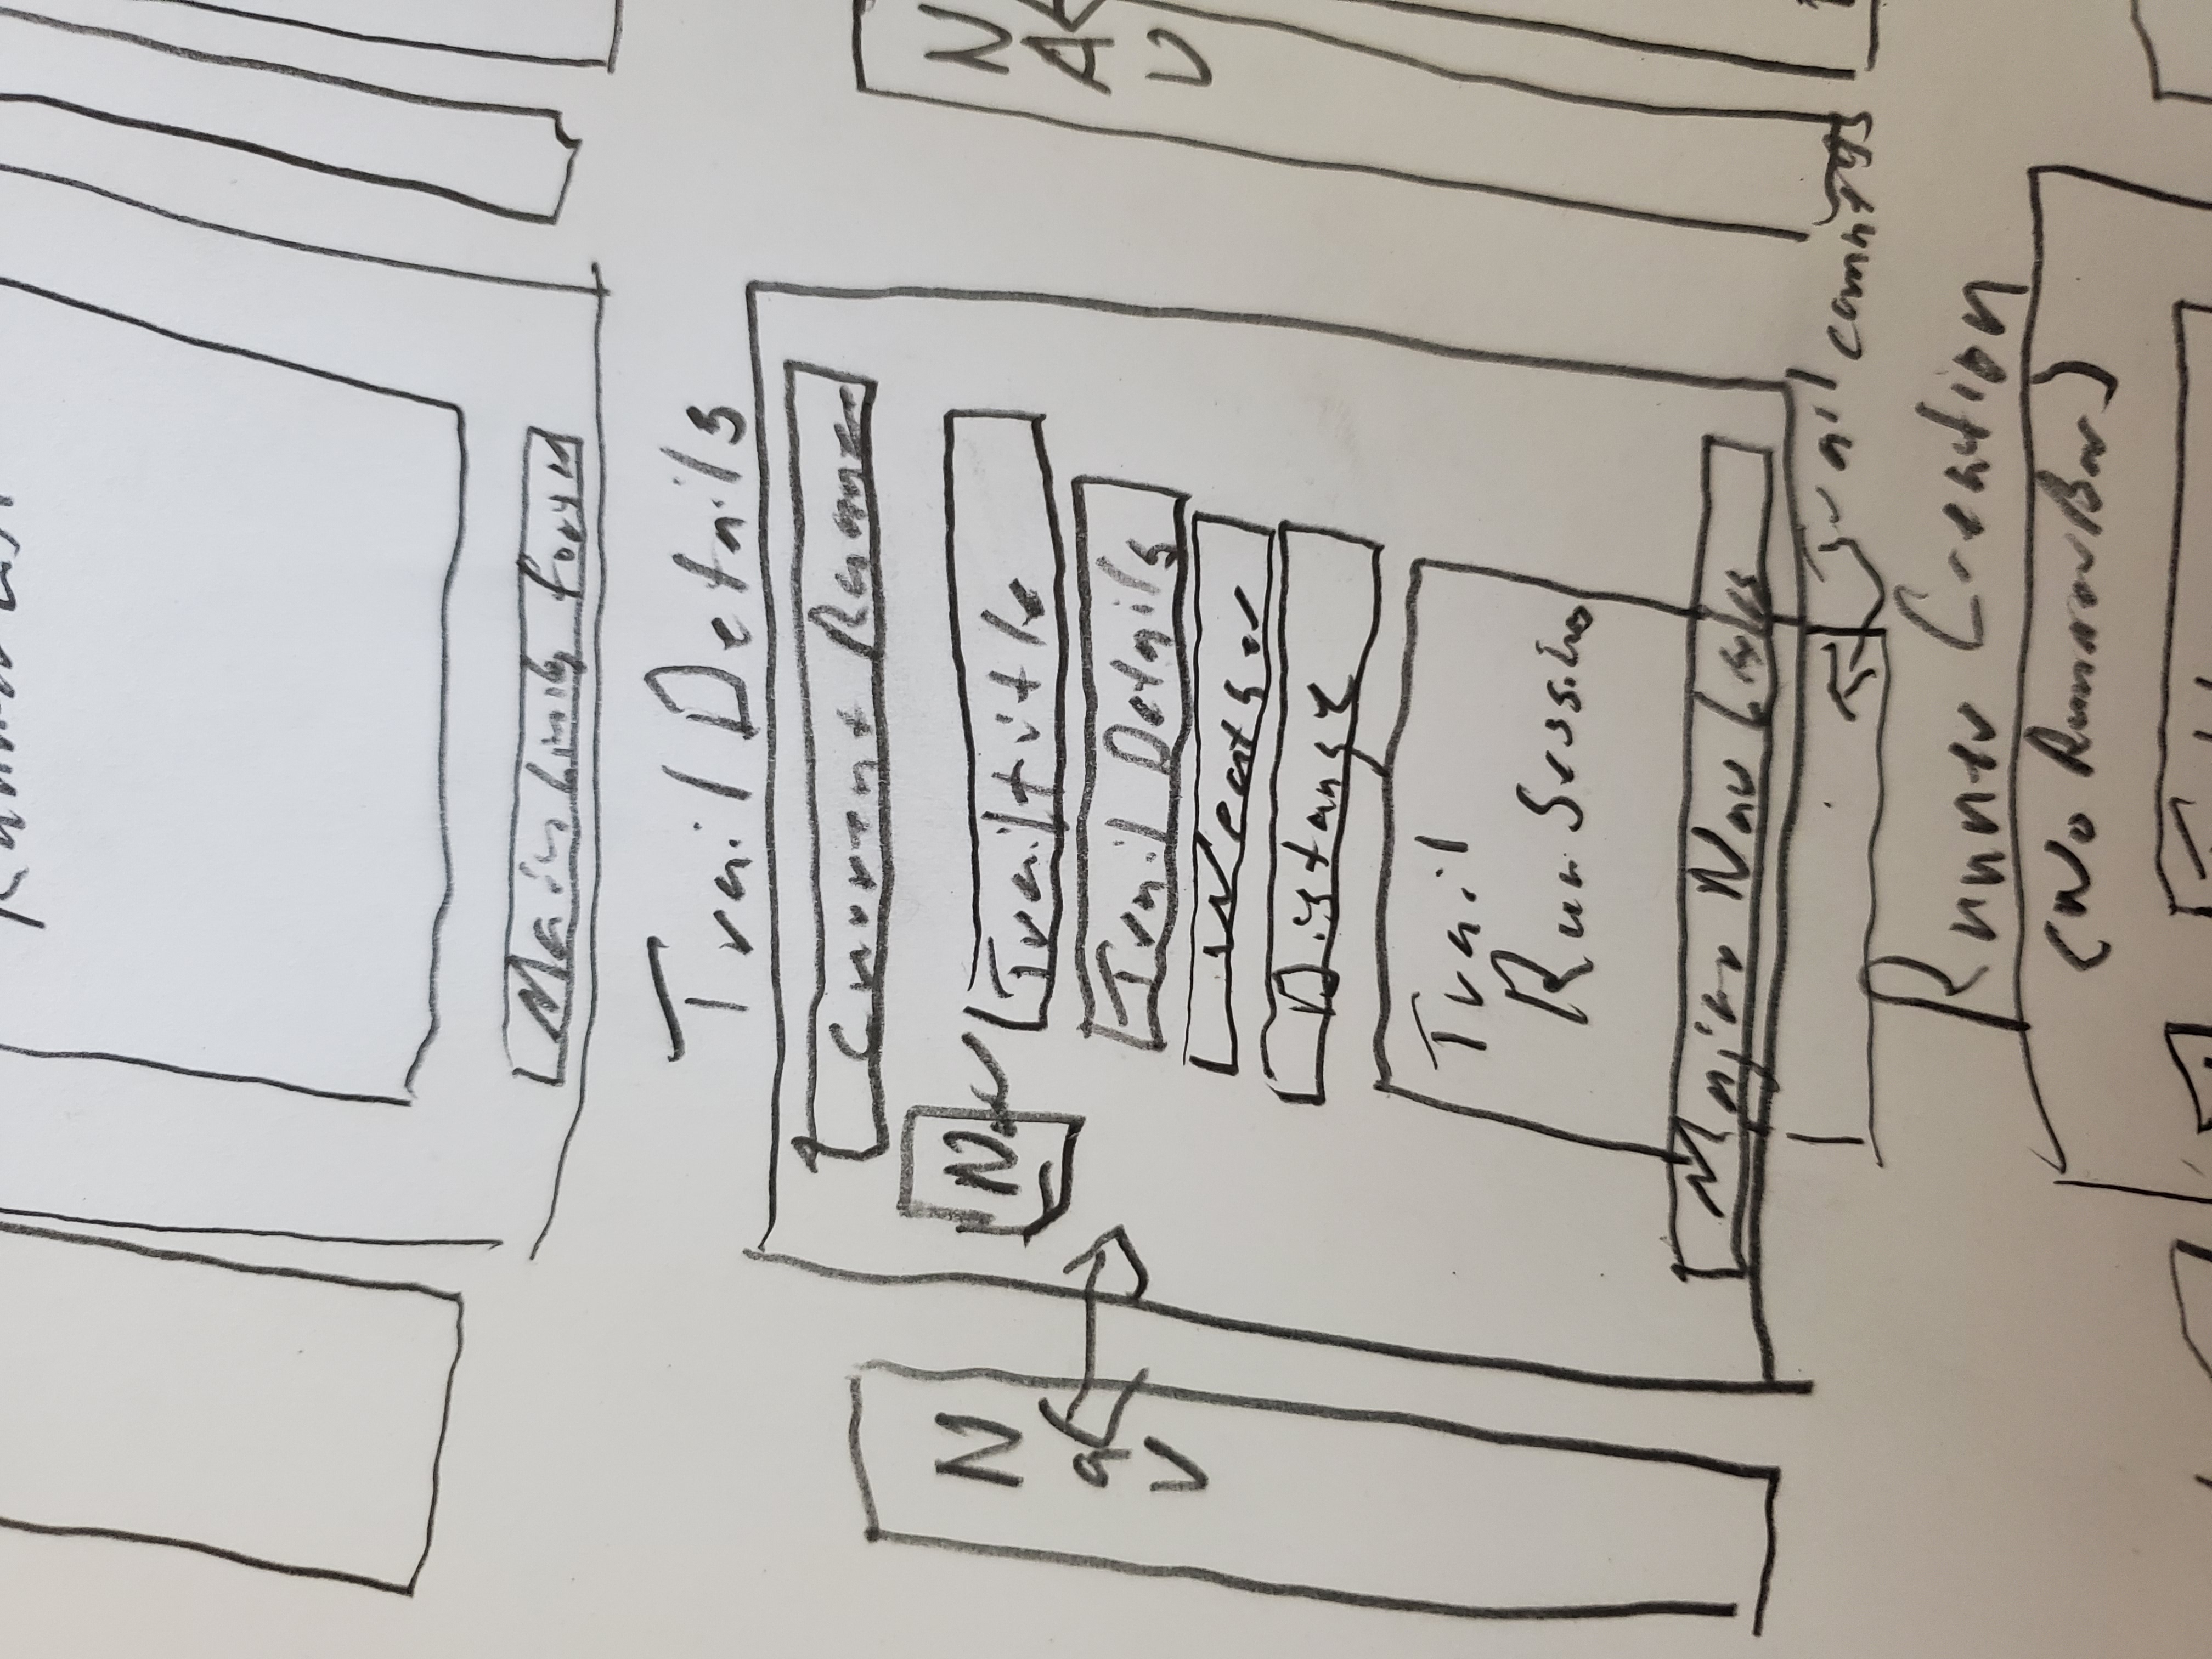 Runner List
Main Links Forum
Trail Details
Current Runner
Nav
Nav
Trail title
Trail Details
Weather
Distange
Trail
Run Session
Major Nav Links
Trail
NAV
Runner Creation
(No Runner Bar)